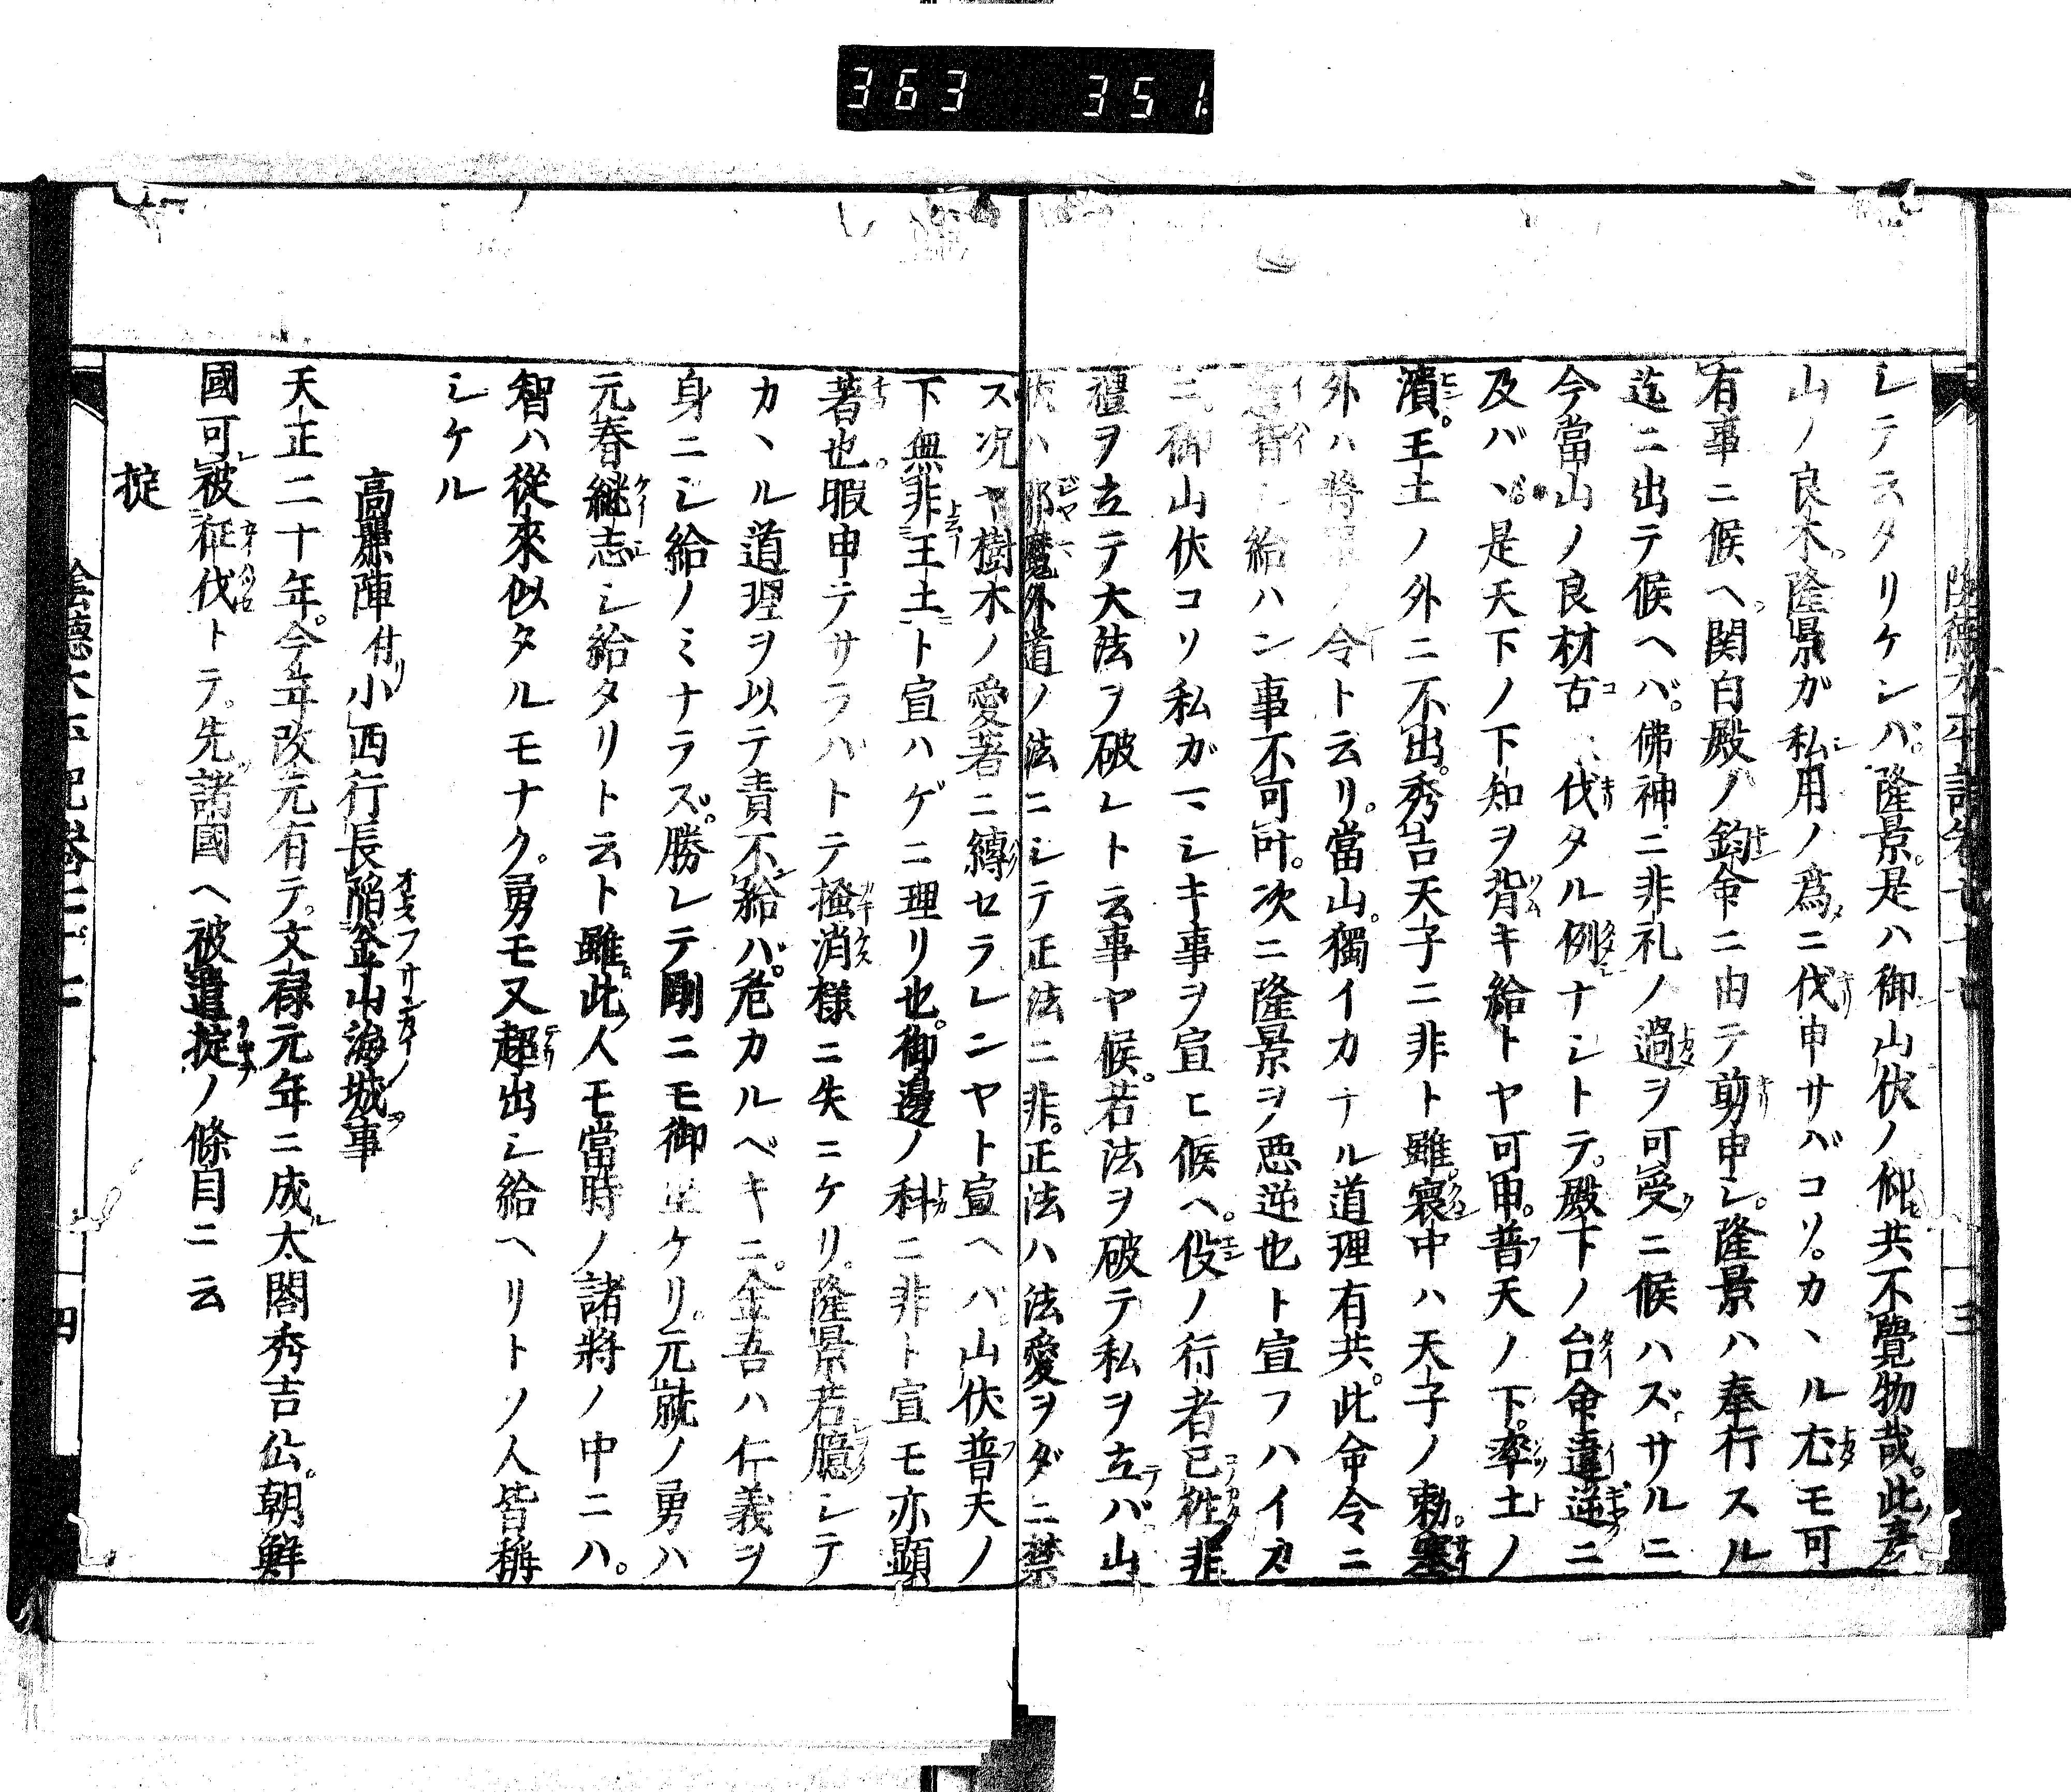 363 351
陰徳太平記巻七十七 三
シテ云タリケンバ。隆景。是ハ御山伏ノ仰共不覺物哉。此彦
山ノ良木。隆景ガ私用ノ爲ニ伐申サバコソ。カヽル尤モ可
有事ニ候ヘ。関白殿ノ鈞命ニ由テ剪申シ。隆景ハ奉行スル
迄ニ出テ候ヘバ。佛神ニ非礼ノ過ヲ可受ニ候ハズ。サルニ
今當山ノ良材古ヘ伐タル例ナシトテ。殿下ノ台命違逆ニ
及バヾ。是天下ノ下知ヲ背キ給トヤ可申。普天ノ下。率土ノ
濱。王土ノ外ニ不出。秀吉天子ニ非ト雖。寰中ハ天子ノ勅。塞
外ハ將軍ノ令ト云リ。當山。獨イカナル道理有共。此命令ニ
違背シ給ハン事不可叶。次ニ隆景ヲ悪逆也ト宣フハイカ
ニ。御山伏コソ私ガマシキ事ヲ宣ヒ候ヘ。役ノ行者已徃非
禮ヲ立テ大法ヲ破レト云事ヤ候。若法ヲ破テ私ヲ立バ山
伏ハ邪魔外道ノ法ニシテ正法ニ非。正法ハ法愛ヲダニ禁
ス况ヤ樹木ノ愛著ニ縛セラレンヤト宣ヘバ。山伏普天ノ
下無非王土ト宣ハゲニ理リ也。御邊ノ科ニ非ト宣モ亦顯
著也。暇申テサラバトテ掻消様ニ失ニケリ。隆景若臆シテ
カヽル道理ヲ以テ責不給バ。危カルベキニ。金吾ハ仁義ヲ
身ニシ給ノミナラズ。勝レテ剛ニモ御坐ケリ。元就ノ勇ハ
元春継志シ給タリト云ト雖。此人モ當時ノ諸將ノ中ニハ。
智ハ從來似タルモナク。勇モ又超出シ給ヘリトソ人皆稱
シケル
高麗陣付小西行長陥釜山海城事
天正二十年。今年改元有テ。文禄元年ニ成。太閤秀吉公。朝鮮
國可被征伐トテ。先諸國ヘ被遣掟ノ條目ニ云
掟
陰徳太平記巻七十七 四